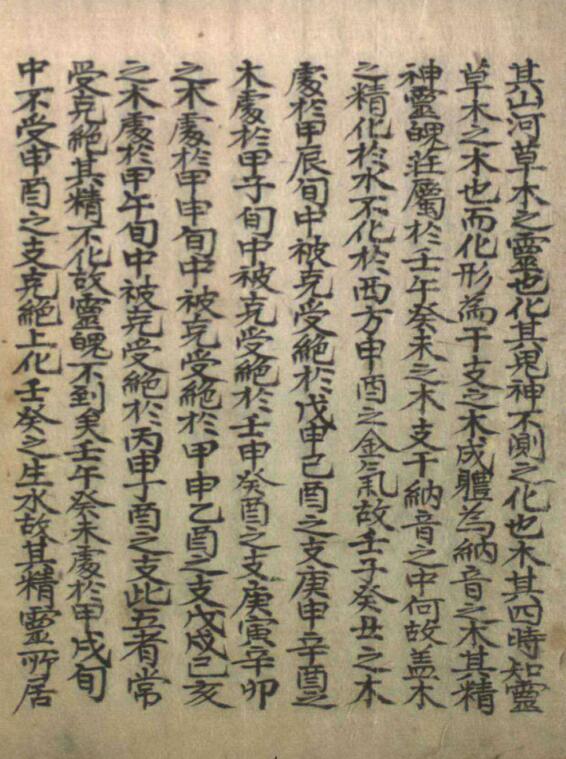 其山河草木之靈也化其鬼神不測之化也木其四時知靈
草木之木也而化形為干支之木成體為納音之木其精
神靈魄莊屬於壬午癸未之木支干納音之中何故盖木
之精化於水不化於西方申酉之金氣故壬子癸丑之木
處於甲辰旬中被克受絶於戊申己酉之支庚申辛酉之
木處於甲子旬中被克受絶於壬申癸酉之支庚寅辛卯
之木處於甲申旬中被克受絶於甲申乙酉之支戊戌己亥
之木處於甲午旬中被克受絶於丙申子酉之支此五者常
受克絶其精不化故靈魄不到矣壬午癸未處於甲戌旬
中不受申酉之支克絶上化壬癸之生水故其精靈所居